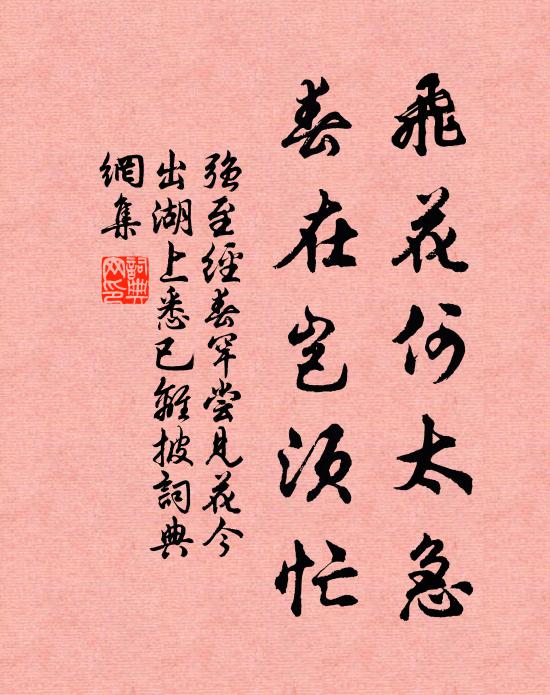 飛花何太急
春在岂須忙
強至經春罕嘗見花今
出湖上悉已離披詞典
網集
詞典
网印